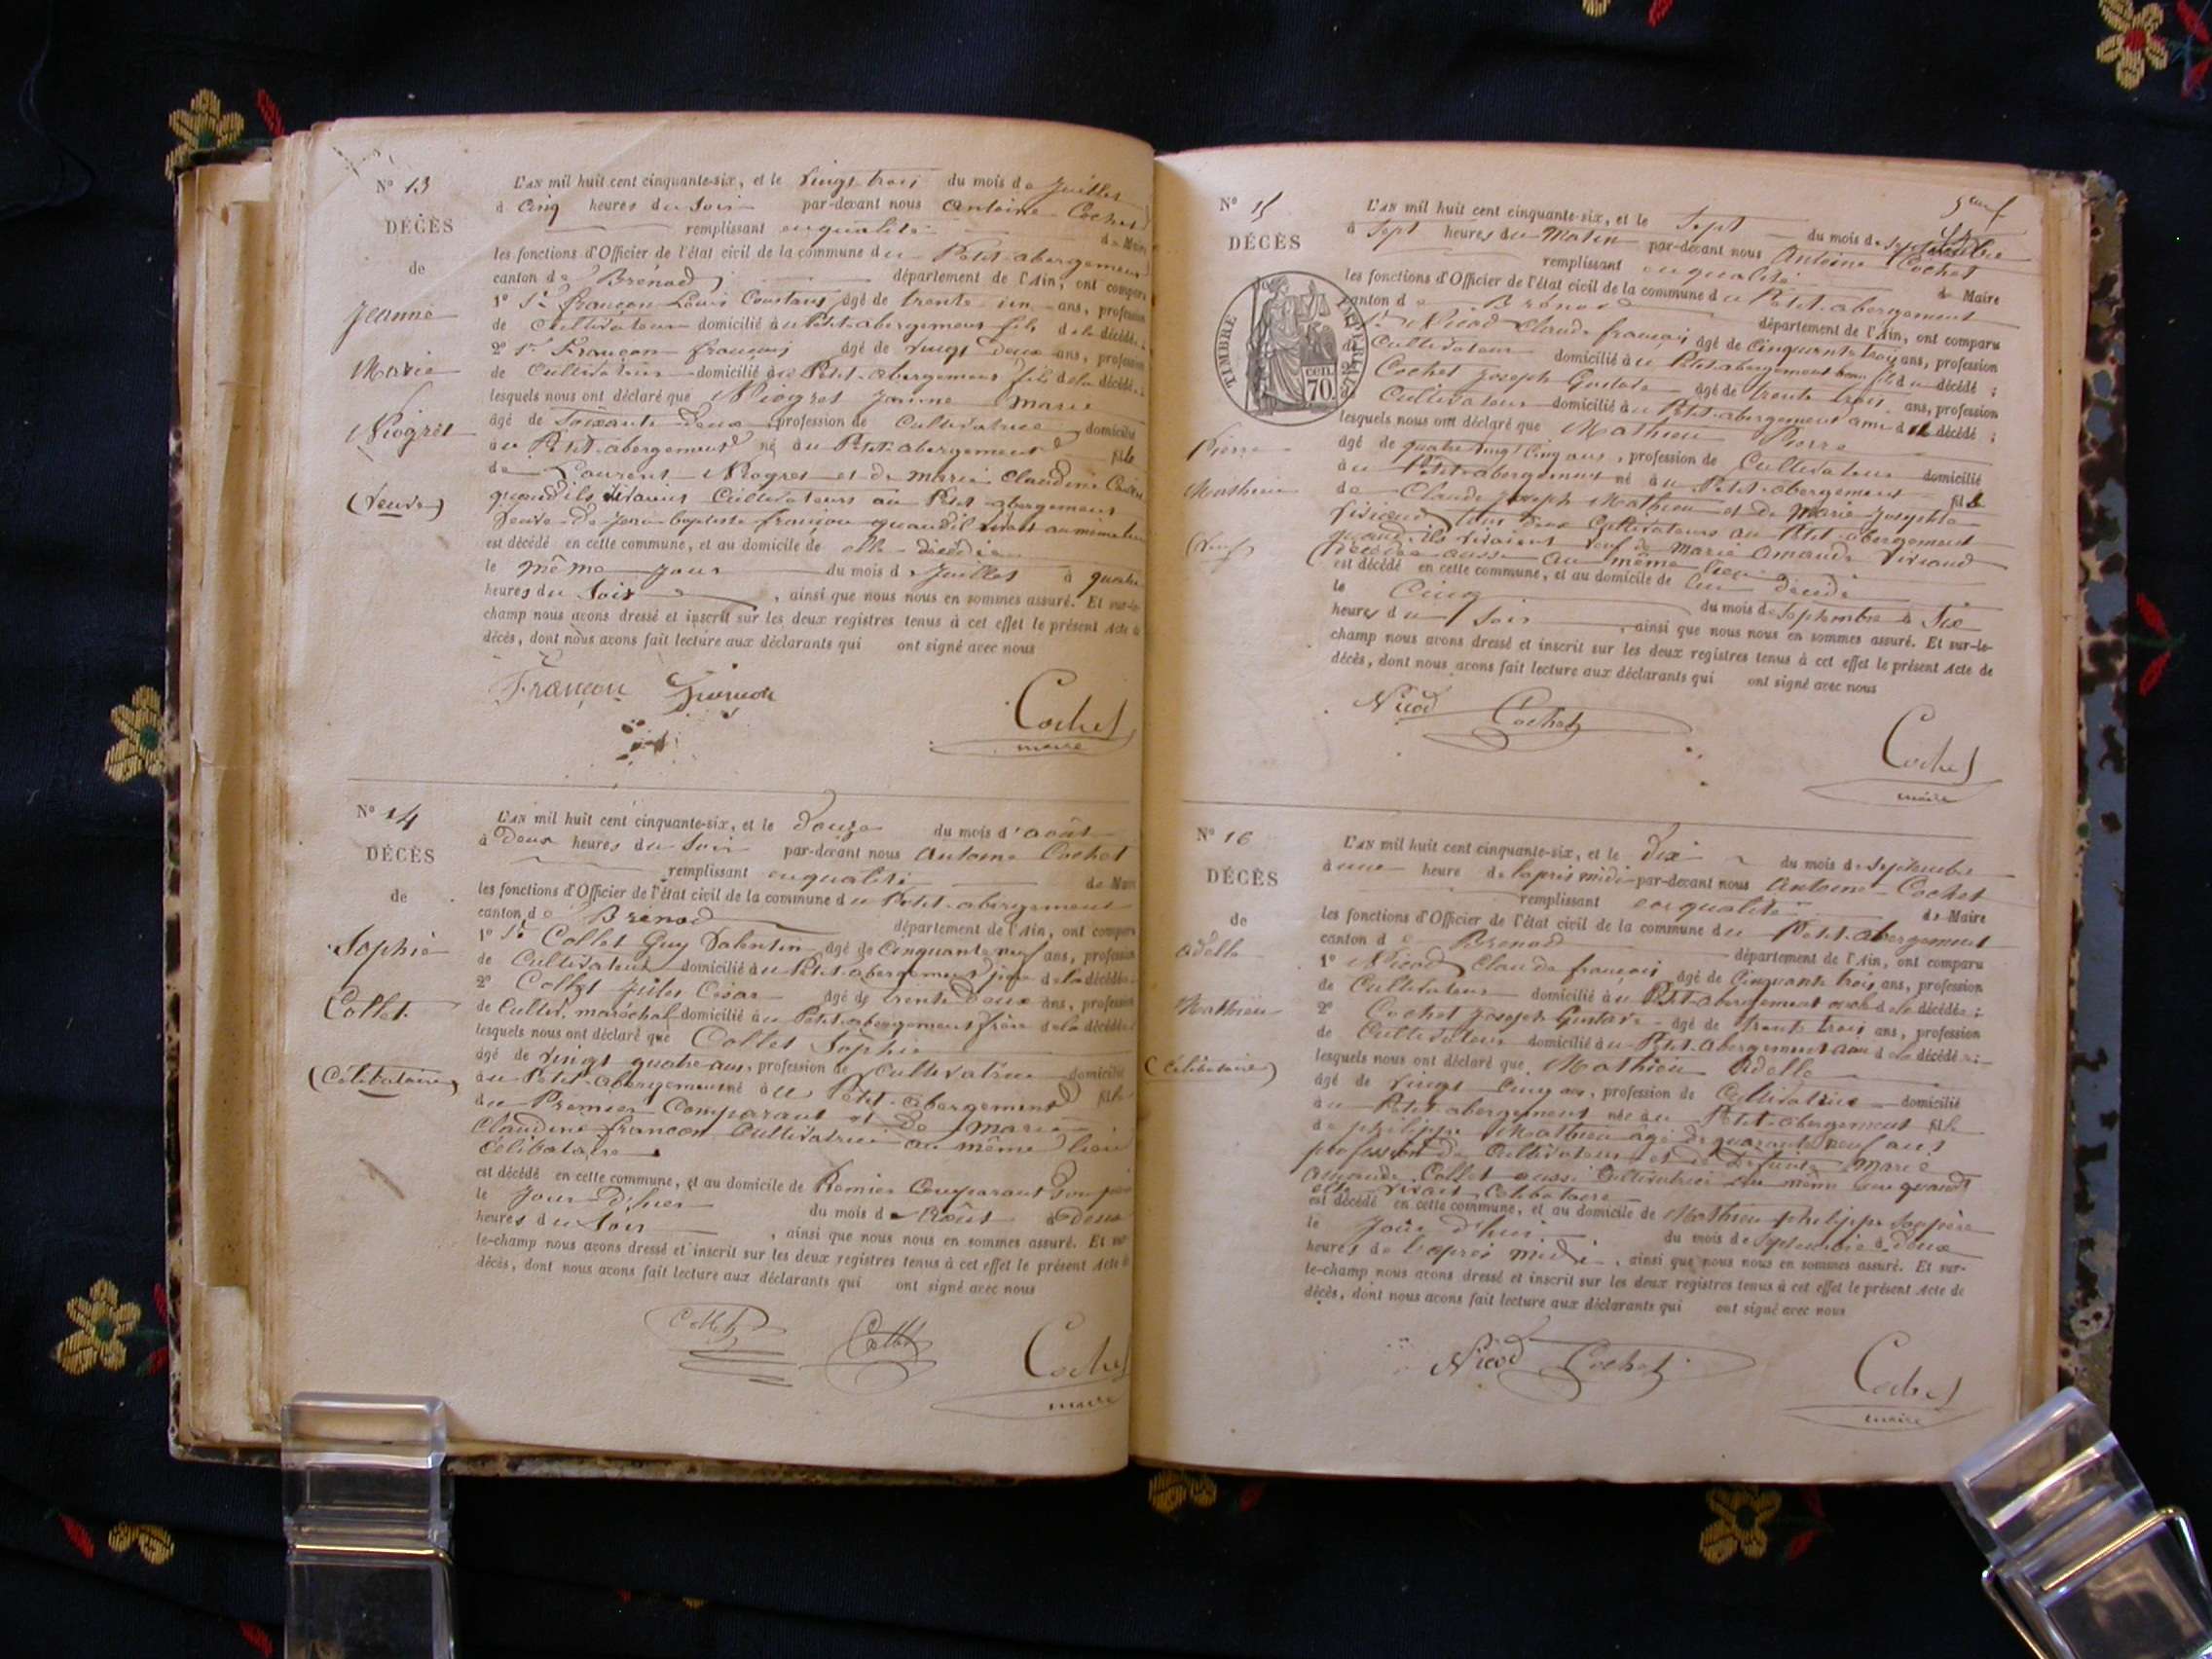 N° 13
DÉCÈS
de
Jeanne
Marie
Niogret
(veuve)
L'AN mil huit cent cinquante-six, et le vingt trois du mois de Juillet
à Cinq heures du Soir par-devant nous Antoine Cochet
remplissant en qualité de Maire
les fonctions d'Officier de l'état civil de la commune du Petit-abergement
canton de Brénod département de l'Ain, ont comparu
1° Sr françon Louis Constant âgé de trente un ans, profession
de Cultivateur domicilié au Petit-abergement fils de la décédée
2° Sr Françon françois âgé de vingt deux ans, profession
de Cultivateur domicilié au Petit-abergement fils de la décédée
lesquels nous ont déclaré que Niogret Jeanne Marie
âgé de Soixante deux, profession de Cultivatrice domicilié
au Petit-abergement né au Petit-abergement fille
de Laurent Niogret et de marie Claudine
quand ils vivaient Cultivateurs au Petit abergement
veuve de Jean baptiste françon quand il vivait au même lieu
est décédé en cette commune, et au domicile de elle décédée
le même jour du mois de Juillet à quatre
heures du Soir, ainsi que nous nous en sommes assuré. Et sur-le-
champ nous avons dressé et inscrit sur les deux registres tenus à cet effet le présent Acte de
décès, dont nous avons fait lecture aux déclarants qui ont signé avec nous
Françon Françon
Cochet
maire
N° 14
DÉCÈS
de
Sophie
Collet
(Célibataire)
L'AN mil huit cent cinquante-six, et le douze du mois d'août
à Deux heures du Soir par-devant nous Antoine Cochet
remplissant en qualité de Maire
les fonctions d'Officier de l'état civil de la commune du Petit-abergement
canton de Brénod département de l'Ain, ont comparu
1° Sr Collet Guy Valentin âgé de Cinquante neuf ans, profession
de Cultivateur domicilié au Petit-abergement père de la décédée
2° Collet Jules César âgé de trente deux ans, profession
de Cultiv. maréchal domicilié au Petit-abergement frère de la décédée
lesquels nous ont déclaré que Collet Sophie
âgé de vingt quatre ans, profession de Cultivatrice domicilié
au Petit-abergement né au Petit-abergement fille
du Premier Comparant et de Marie
Claudine françon Cultivatrice au même lieu
Célibataire
est décédé en cette commune, et au domicile de Premier Comparant Son père
le Jour d'hier du mois de Août à Deux
heures du Soir, ainsi que nous nous en sommes assuré. Et sur-
le-champ nous avons dressé et inscrit sur les deux registres tenus à cet effet le présent Acte de
décès, dont nous avons fait lecture aux déclarants qui ont signé avec nous
Collet Collet
Cochet
maire
N° 15
DÉCÈS
TIMBRE IMPERIAL
70 cen.
Pierre
Mathieu
(veuf)
L'AN mil huit cent cinquante-six, et le Sept du mois de Septembre
à Sept heures du Matin par-devant nous Antoine Cochet
remplissant en qualité de Maire
les fonctions d'Officier de l'état civil de la commune du Petit-abergement
canton de Brénod département de l'Ain, ont comparu
Sr Nicod Claude françois âgé de Cinquante trois ans, profession
de Cultivateur domicilié au Petit-abergement beau fils du décédé ;
Cochet Joseph Gustave âgé de trente trois ans, profession
Cultivateur domicilié au Petit-abergement ami du décédé ;
lesquels nous ont déclaré que Mathieu Pierre
âgé de quatre vingt Cinq ans, profession de Cultivateur domicilié
au Petit-abergement né au Petit-abergement fils
de Claude Joseph Mathieu et de Marie Josephte
Viviand tous deux Cultivateurs au Petit-abergement
quand ils vivaient veuf de Marie Amande Viviand
décédée aussi au même lieu
est décédé en cette commune, et au domicile de lui décédé
le Cinq du mois de Septembre à Six
heures du Soir, ainsi que nous nous en sommes assuré. Et sur-le-
champ nous avons dressé et inscrit sur les deux registres tenus à cet effet le présent Acte de
décès, dont nous avons fait lecture aux déclarants qui ont signé avec nous
Nicod Cochet
Cochet
maire
N° 16
DÉCÈS
de
Adelle
Mathieu
(Célibataire)
L'AN mil huit cent cinquante-six, et le dix du mois de Septembre
à une heure de l'après midi par-devant nous Antoine Cochet
remplissant en qualité de Maire
les fonctions d'Officier de l'état civil de la commune du Petit-abergement
canton de Brénod département de l'Ain, ont comparu
1° Nicod Claude françois âgé de Cinquante trois ans, profession
de Cultivateur domicilié au Petit-abergement oncle de la décédée ;
2° Cochet Joseph Gustave âgé de trente trois ans, profession
de Cultivateur domicilié au Petit-abergement ami de la décédée ;
lesquels nous ont déclaré que Mathieu Adelle
âgé de vingt Cinq ans, profession de Cultivatrice domicilié
au Petit-abergement née au Petit-abergement fille
de philippe Mathieu âgé de quarante neuf ans
profession de Cultivateur et de Defunte Marie
Amande Collet aussi Cultivatrice au même lieu quand
elle vivait Célibataire
est décédé en cette commune, et au domicile de Mathieu philippe Son père
le Jour d'hier du mois de Septembre à deux
heures de l'après midi, ainsi que nous nous en sommes assuré. Et sur-
le-champ nous avons dressé et inscrit sur les deux registres tenus à cet effet le présent Acte de
décès, dont nous avons fait lecture aux déclarants qui ont signé avec nous
Nicod Cochet
Cochet
maire